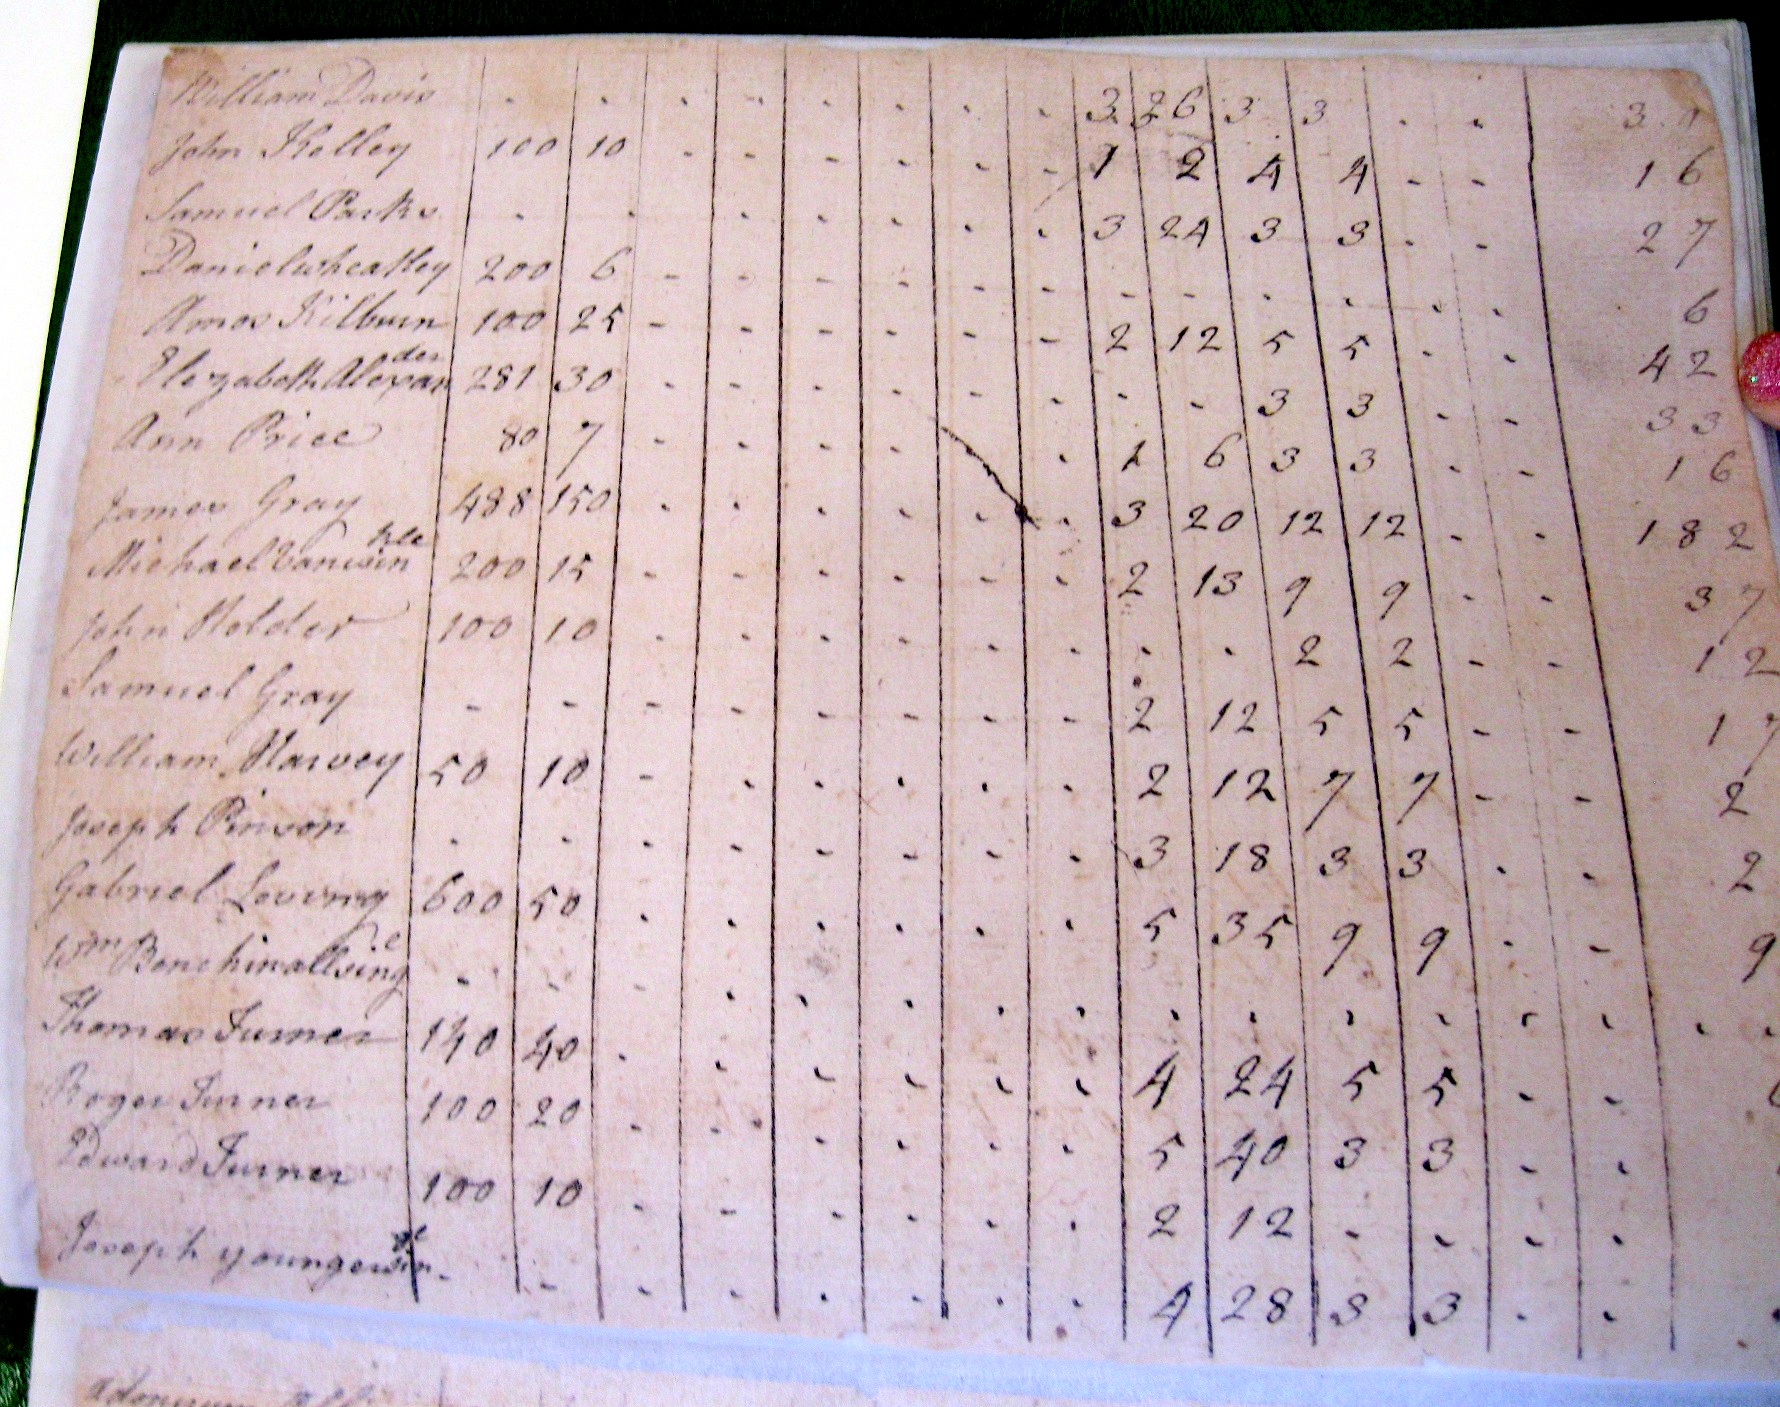 William Davis - - - - - - - - 3 26 3 3 - - 3
John Kelley 100 10 - - - - - - 1 2 4 4 - - 16
Samuel Parks - - - - - - - - 3 24 3 3 - - 27
Daniel wheatley 200 6 - - - - - - - - - - - - 6
Amos Kilburn 100 25 - - - - - - 2 12 5 5 - - 42
Elezabeth Alexander 281 30 - - - - - - - - 3 3 - - 33
Ann Price 80 7 - - - - - 1 6 3 3 - - 16
James Gray 488 150 - - - - - - 3 20 12 12 - - 182
Michael Vanwinkle 200 15 - - - - - - 2 13 9 9 - - 37
John Holder 100 10 - - - - - - - - 2 2 - - 12
Samuel Gray - - - - - - - - 2 12 5 5 - - 17
William Harvey 50 10 - - - - - - 2 12 7 7 - - 2
Joseph Pinson - - - - - - - - 3 18 3 3 - - 2
Gabriel Loving 600 50 - - - - - - 5 35 9 9 - - 9
Wm - - - - - - - - - - - - - - - -
Thomas Turner 140 40 - - - - - - 4 24 5 5 - -
Roger Turner 100 20 - - - - - - 5 40 3 3 - -
Edward Turner 100 10 - - - - - - 2 12 - - - -
Joseph - - - - - - - - 4 28 3 3 - - -